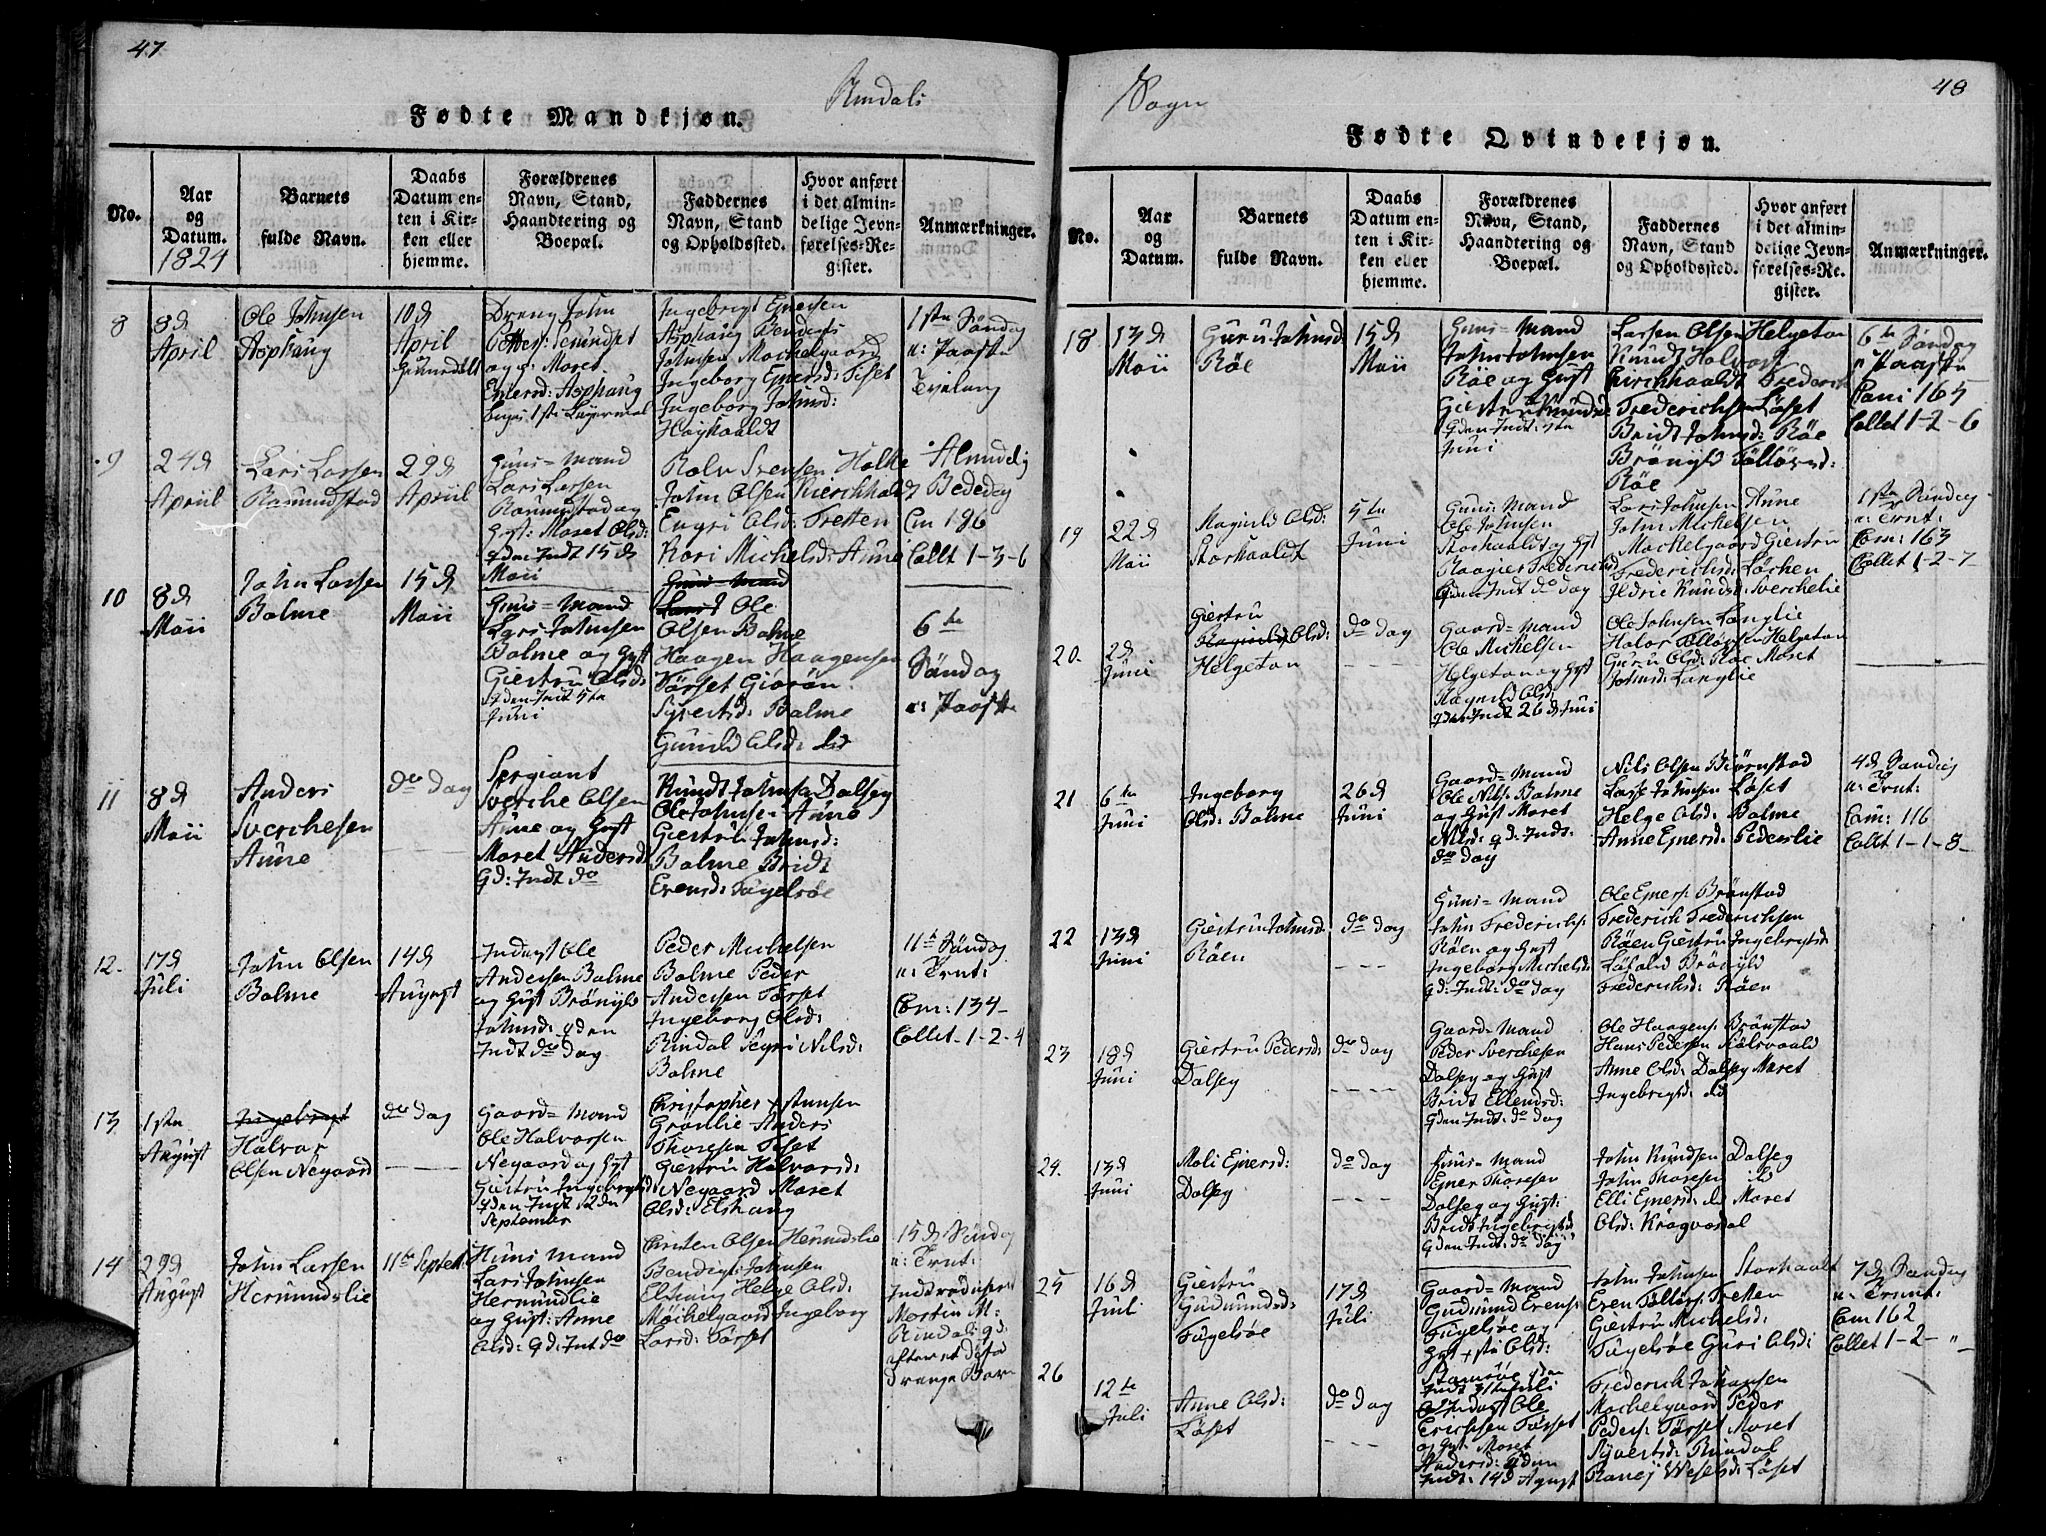 47
Rindals
Fødte Mandkjøn.
No.
Aar
og
Datum.
1824
Barnets
fulde Navn.
Daabs
Datum en-
ten i Kir-
ken eller
hjemme.
Forældrenes
Navn, Stand,
Haandtering og
Boepæl.
Faddernes
Navn, Stand
og Opholdssted.
Hvor anført
i det almin-
delige Jevn-
førelses-Re-
gister.
Anmærkninger.
8
8d
April
Ole Johnsen
Asphaug
10d
April
Dreng John
og p: Moret
Einersd: Asphaug
Ingebrigt Einersen
Asphaug Bendigt
Johnsen Mochelgaard
Ingeborg Einersd: Tiset
Ingeborg Johnsd:
1ste Søndag
n: Paaske
9
24d
Apriil
Lars Larsen
Romundstad
29d
Apriil
Huus=Mand
Lars Larsen
Romundstad og
Gyst: Moret Olsd:
gden Indt 15d
Maii
Svensen Holte
John Olsen Kirchhold
Engri Olsd: Tretten
Kari Michelsd: Aune
Almindelig
Bededag
Cm 196
Collt 1-3-6
10
8d
Maii
John Larsen
Bolme
15d
Maii
Huus=Mand
Lars Johnsen
Bolme og Gyst
Giertru Olsd:
gden Indt 5te
Juni
Huus Mand
Lars Ole
Olsen Bolme
Haagen Haagensen
Tørset Giørøn
Syvertsd: Bolme
Gunild Olsd: do
6te
Søndag
n: Paaske
11
8d
Maii
Anders
Sverchesen
Aune
do Dag
Sergiant
Sverche Olsen
Aune og Gyst
Moret Andersd:
gd: Indt do
Knudt Johnsen Dalseg
Ole Johnsen Aune
Giertru Johnsd:
Bolme Bridt
Evensd: Fugelsøe
12.
17d
Juli
John Olsen
Bolme
14d
August
Inderst Ole
Andersen Bolme
og Gyst Brønild
Johnsd: gden
Indt do Dag
Peder Michelsen
Bolme Peder
Andersen Tørset
Ingeborg Olsd:
Rindal Segri Nilsd:
Bolme
11te Søndag
n: Trnt:
Com: 134-
Collet-1-2-4
13
1ste
August
Ingebrigt
Halvor
Olsen Negaard
do Dag
Gaard=Mand
Ole Halvorsen
Negaard og Gyst
Giertru Ingebrigtsd
gden Indt 12den
September
Christopher Istensen
Grønlie Anders
Thoresen Tiset
Giertru Halvorsd:
Negaard Moret
Olsd: Elshaug
14
29d
August
John Larsen
Hermundslie
11te Septebr
Huus Mand
Lars Johnsen
Hermundslie
og Gyst: Anne
Olsd: gd: Indt do
Christen Olsen Hermundslie
Bendigt Johnsen
Elshaug Helge Olsd:
Møchelgaard Ingeborg
Larsd: Tørset
15d Søndag
n: Trnt:
Morten A:
Rindal gd:
Drenge Barn
Sogn
48
Fødte Qvindekjøn.
No.
Aar
og
Datum.
Barnets
fulde Navn.
Daabs
Datum en-
ten i Kir-
ken eller
hjemme.
Forældrenes
Navn, Stand,
Haandtering og
Boepæl.
Faddernes
Navn, Stand
og Opholdssted.
Hvor anført
i det almin-
delige Jevn-
førelses-Re-
gister.
Anmærkninger.
18
13d
Maii
Guru Johnsd
Røe
15d
Maii
Huus=Mand
John Johnsen
Røe og Gyst
Giertru
gden Indt: 5te
Juni
Larsen Olsen Helgeton
Knudt Halvors
Kirchhaaldt Frederich
Frederichsen Løset
Bridt Johnsd: Røe
Brønild Tølløvsd:
Røe
6te Søndag
n Paaske
Comi 165
Collet 1-2-6
19
22d
Maii
Magnild Olsd:
Storhaaldt
5te
Juni
Huus: Mand
Ole Johnsen
Storhaaldt og Gyst
Maagier Frederichsd
gden Indt do Dag
Lars Johnsen Aune
John Michelsen
Mochelgaard Giertru
Frederichsd: Løchen
Ildrie Knudsd: Sverchelie
1ste Søndag
n: Trnt:
Com: 163
Collet 1-2-7
20.
2d
Juni
Giertru
Magnild Olsd:
Helgeton
do Dag
Gaard=Mand
Ole Michelsen
Helgeton og Gyst
Magnild Olsd:
gden Indt 26d Juni
Ole Johnsen Langlie
Halvor Tølløvsen Helgeton
Guru Olsd: Røe Moret
Johnsd: Langlie
21
6te
Juni
Ingeborg
Olsd: Bolme
26d
Juni
Gaard=Mand
Ole Nils: Bolme
og Gyst Moret
Nilsd: gd: Indt:
do Dag
Nils Olsen Biørnstad
Lars Johnsen Løset
Helge Olsd: Bolme
Anne Einersd: Pederslie
4d Søndag
n: Trnt:
Com: 116
Collet 1-1-8-
22
13d
Juni
Giertru Johnsd.
Røen
do Dag
Huus=Mand
John Frederichs:
Røen og Gyst
Ingeborg Michelsd:
gd: Indt: do Dag
Ole Einers: Brønstad
Frederich Frederichsen
Røen Giertru Ingebrigtsd:
Løfald Brønild
Frederichsd: Røen
23
18d
Juni
Giertru Pedersd:
Dalseg
do Dag
Gaard=Mand
Peder Sverchesen
Dalseg og Gyst
Bridt Ellensd:
gden Indt: do Dag
Ole Haagens: Brønstad
Hans Pedersen Kiølsvaald
Anne Olsd: Dalseg Moret
Ingebrigtsd: do
24.
13d
Juni
Moli Einersd:
Dalseg
do Dag
Huus=Mand
Einer Thoresen
Dalseg og Gyst:
Bridt Ingebrigtsd
gden Indt: do Dag
John Knudsen Dalseg
John Thoresen do
Elli Einersd: do Moret
Olsd: Krogvadal
25
16d
Juli
Giertru
Gudmundsd:
Fugelsøe
17d
Juli
Gaard=Mand
Gudmund Evens:
Fugelsøe og
Gyst Olsd:
gden
Indt 31te Juli
John Johnsen Storhaaldt
Even Tølløvs: Tretten
Giertru Michelsd:
Fugelsøe Guri Olsd:
7d Søndag
n: Trnt:
Com 162
Collet 1-2-"
26
12te
Juli
Anne Olsd:
Løset
do Dag
Inderst Ole
Erichsen Tørset
og Gyst Moret
Andersd: gden
Indt: 14d August
Frederich Johansen
Mochelgaard Peder
Peders: Tørset Moret
Syvertsd: Rindal
Løset